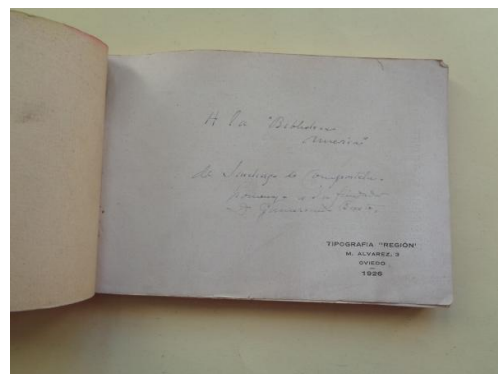 A la "Biblioteca
America"
de Santiago de Compostela.
homenaje a su fundador
TIPOGRAFIA "REGIÓN"
M. ALVAREZ, 3
OVIEDO
1926